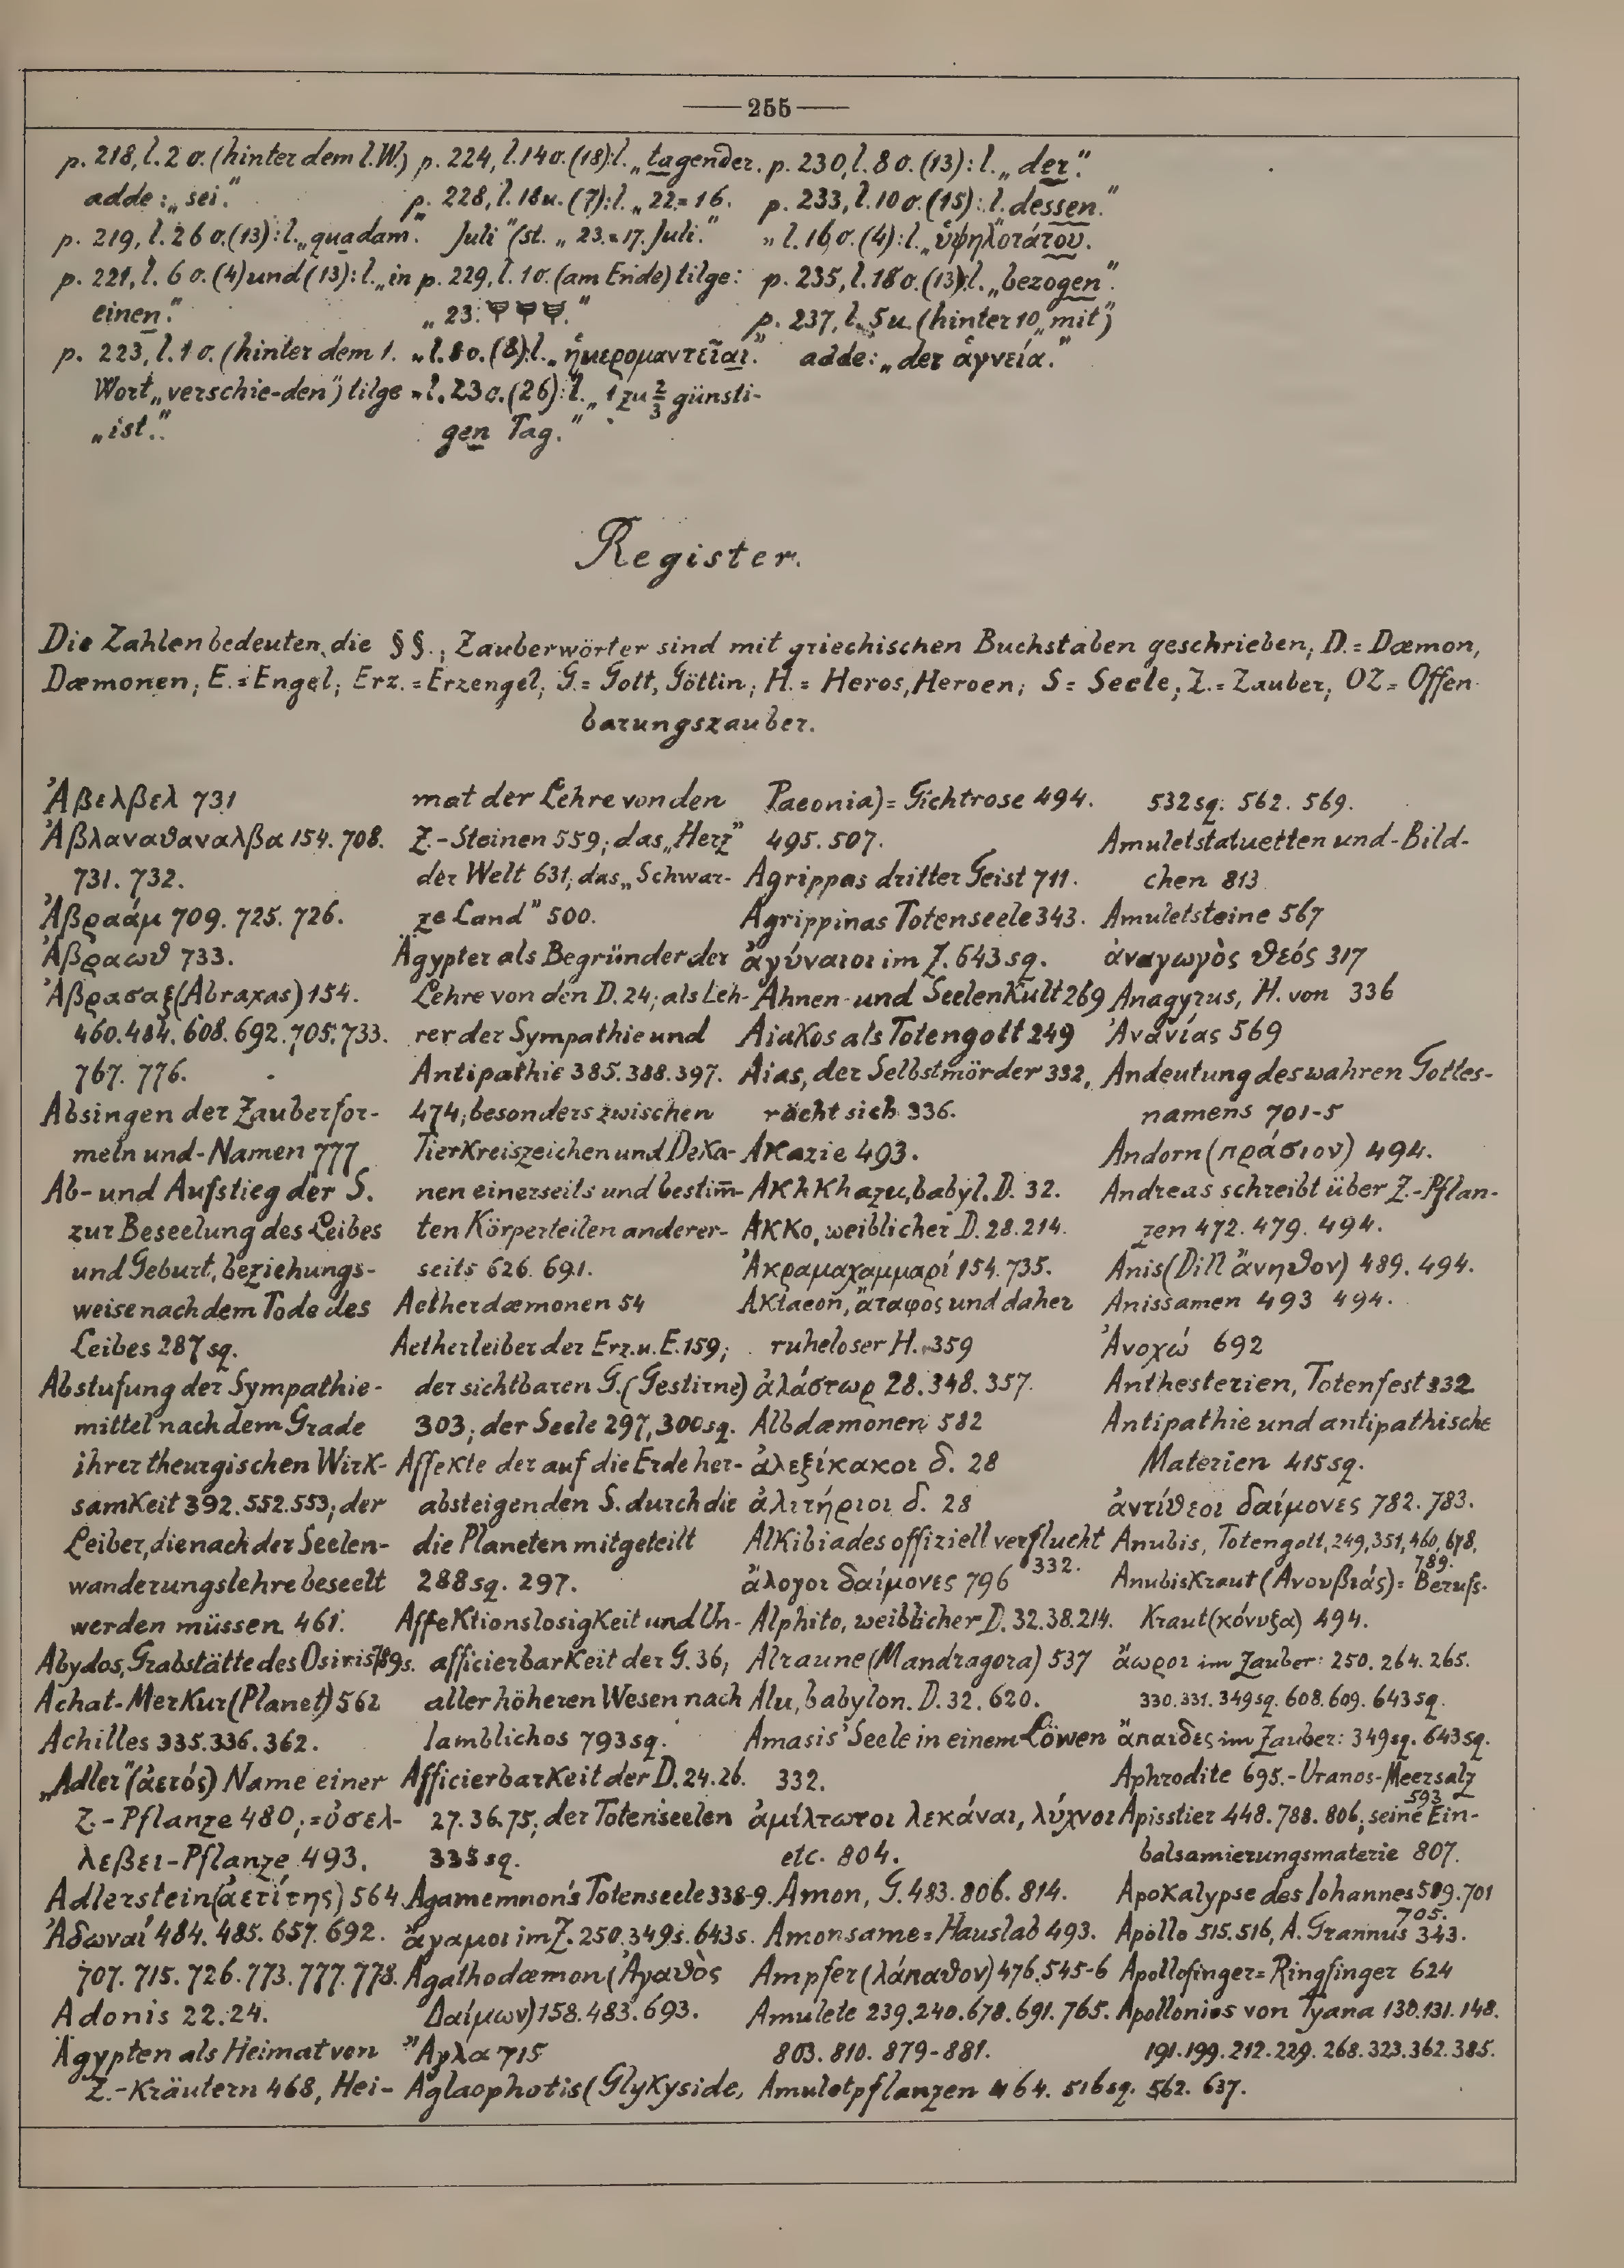 255
p. 218, l. 2 o. (hinter dem l. W.)
adde: „sei.”
p. 219, l. 26 o. (13): l. „quadam”.
p. 221, l. 6 o. (4) und (13): l. „in
einen.”
p. 223, l. 1 o. (hinter dem 1.
Wort „verschie-den”) tilge
„ist.”
p. 224, l. 14 o. (18): l. „tagender.
p. 228, l. 18 u. (7): l. „22 = 16.
Juli” (st. „23. = 17. Juli.”
p. 229, l. 1 o. (am Ende) tilge:
„23.
„ l. 8 o. (8): l. „ἡμερομαντεῖαι.”
„ l. 23 o. (26): l. „1 zu 2/3 günsti-
gen Tag.”
p. 230, l. 8 o. (13): l. „der”.
p. 233, l. 10 o. (15): l. dessen.”
„ l. 16 o. (4): l. „ὑψηλοτάτου.
p. 235, l. 18 o. (13): l. „bezogen”.
p. 237, l. 5 u. (hinter 10 „mit”)
adde: „der ἁγνεία.”
Register.
Die Zahlen bedeuten die §§.; Zauberwörter sind mit griechischen Buchstaben geschrieben; D. = Dæmon,
Dæmonen; E. = Engel; Erz. = Erzengel; G. = Gott, Göttin; H. = Heros, Heroen; S = Seele; Z. = Zauber; OZ = Offen
barungszauber.
Ἀβελβελ 731
Ἀβλαναθαναλβα 154. 708.
731. 732.
Ἀβραάμ 709. 725. 726.
Ἀβραωθ 733.
Ἀβρασαξ (Abraxas) 154.
460. 484. 608. 692. 705. 733.
767. 776.
Absingen der Zauberfor-
meln und -Namen 777
Ab- und Aufstieg der S.
zur Beseelung des Leibes
und Geburt, beziehungs-
weise nach dem Tode des
Leibes 287 sq.
Abstufung der Sympathie-
mittel nach dem Grade
ihrer theurgischen Wirk-
samkeit 392. 552. 553; der
Leiber, die nach der Seelen-
wanderungslehre beseelt
werden müssen 461.
Abydos, Grabstätte des Osiris 789s.
Achat-Merkur (Planet) 562
Achilles 335. 336. 362.
„Adler” (ἀετός) Name einer
Z.-Pflanze 480; = ὀσελ-
λεβει-Pflanze 493.
Adlerstein (ἀετίτης) 564.
Ἀδωναί 484. 485. 657. 692.
707. 715. 726. 773. 777. 778.
Adonis 22. 24.
Ägypten als Heimat von
Z.-Kräutern 468, Hei-
mat der Lehre von den
Z.-Steinen 559; das „Herz”
der Welt 631; das „Schwar-
ze Land” 500.
Ägypter als Begründer der
Lehre von den D. 24; als Leh-
rer der Sympathie und
Antipathie 385. 388. 397.
474; besonders zwischen
Tierkreiszeichen und Deka-
nen einerseits und bestim̄-
ten Körperteilen anderer-
seits 626. 691.
Aetherdæmonen 54
Aetherleiber der Erz. u. E. 159;
der sichtbaren G. (Gestirne)
303; der Seele 297, 300 sq.
Affekte der auf die Erde her-
absteigenden S. durch die
die Planeten mitgeteilt
288 sq. 297.
Affektionslosigkeit und Un-
afficierbarkeit der G. 36;
aller höheren Wesen nach
Iamblichos 793 sq.
Afficierbarkeit der D. 24. 26.
27. 36. 75; der Totenseelen
335 sq.
Agamemnon's Totenseele 338-9.
ἄγαμοι im Z. 250. 349s. 643s.
Agathodæmon (Ἀγαθὸς
Δαίμων) 158. 483. 693.
Ἄγλα 715
Aglaophotis (Glykyside,
Paeonia) = Gichtrose 494.
495. 507.
Agrippas dritter Geist 711.
Agrippinas Totenseele 343.
ἀγύναιοι im Z. 643 sq.
Ahnen- und Seelenkult 269
Aiakos als Totengott 249
Aias, der Selbstmörder 332,
rächt sich 336.
Akazie 493.
Akhkhazu, babyl. D. 32.
Akko, weiblicher D. 28. 214.
Ἀκραμαχαμμαρί 154. 735.
Aktaeon, ἄταφος und daher
ruheloser H. 359
ἀλάστωρ 28. 348. 357.
Albdæmonen 582
ἀλεξίκακοι δ. 28
ἀλιτήριοι δ. 28
Alkibiades offiziell verflucht
332.
ἄλογοι δαίμονες 796
Alphito, weiblicher D. 32. 38. 214.
Alraune (Mandragora) 537
Alu, babylon. D. 32. 620.
Amasis' Seele in einem Löwen
332.
ἀμίλτωτοι λεκάναι, λύχνοι
etc. 804.
Amon, G. 483. 806. 814.
Amonsame = Hauslab 493.
Ampfer (λάπαθον) 476. 545-6
Amulete 239. 240. 678. 691. 765.
803. 810. 879-881.
Amuletpflanzen 464. 516 sq. 562. 637.
532 sq. 562. 569.
Amuletstatuetten und -Bild-
chen 813
Amuletsteine 567
ἀναγωγὸς θεός 317
Anagyrus, H. von 336
Ἀνανίας 569
Andeutung des wahren Gottes-
namens 701-5
Andorn (πράσιον) 494.
Andreas schreibt über Z.-Pflan-
zen 472. 479. 494.
Anis (Dill ἄνηθον) 489. 494.
Anissamen 493 494.
Ἀνοχώ 692
Anthesterien, Totenfest 332
Antipathie und antipathische
Materien 415 sq.
ἀντίθεοι δαίμονες 782. 783.
Anubis, Totengott, 249, 351, 460, 678,
789.
Anubiskraut (Ἀνουβιάς) = Berufs-
Kraut (κόνυξα) 494.
ἄωροι im Zauber: 250. 264. 265.
330. 331. 349 sq. 608. 609. 643 sq.
ἄπαιδες im Zauber: 349 sq. 643 sq.
Aphrodite 695. - Uranos-Meersalz
593
Apisstier 448. 788. 806; seine Ein-
balsamierungsmaterie 807.
Apokalypse des Iohannes 589. 701
705.
Apollo 515. 516, A. Grannus 343.
Apollofinger = Ringfinger 624
Apollonios von Tyana 130. 131. 148.
191. 199. 212. 229. 268. 323. 362. 385.